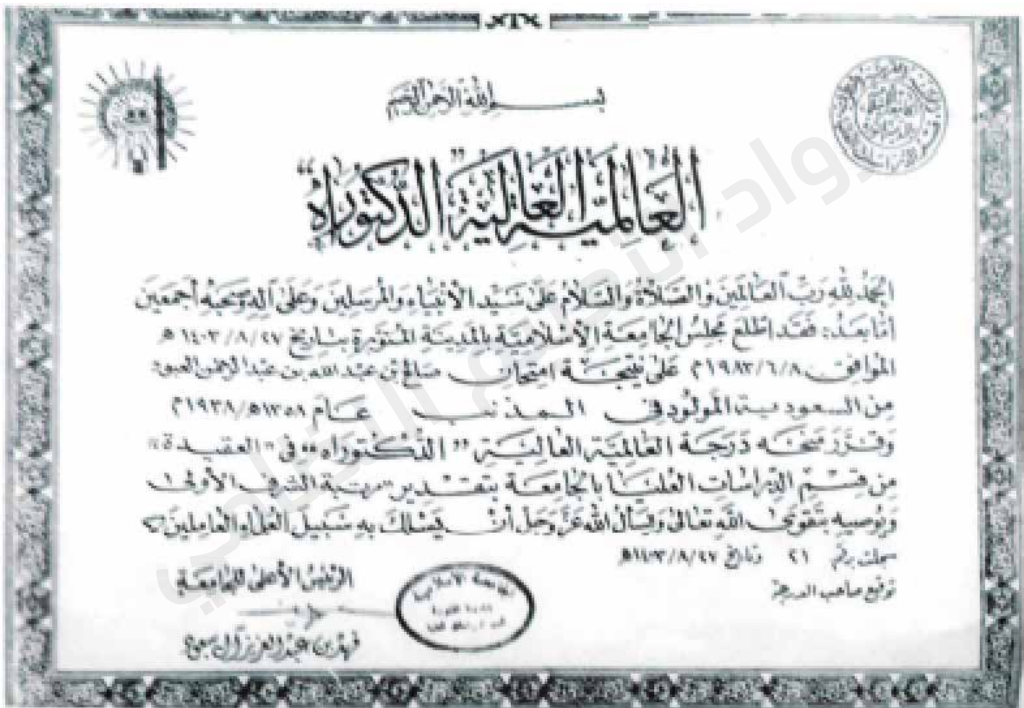 بسم الله الرحمن الرحيم
العالمية العالية "الدكتوراه"
الحمد لله رب العالمين والصلاة والسلام على سيد الأنبياء والمرسلين وعلى آله وصحبه أجمعين
أما بعد: فقد اطلع مجلس الجامعة الإسلامية بالمدينة المنورة بتاريخ ١٤٠٣/٨/٢٧هـ
الموافق ١٩٨٣/٦/٨م على نتيجة امتحان صالح بن عبد الله بن عبد الرحمن العبود
من السعودية المولود في المذنب عام ١٣٥٨هـ/١٩٣٨م
وقرر منحه درجة العالمية العالية "الدكتوراه" في "العقيدة"
من قسم الدراسات العليا بالجامعة بتقدير "مرتبة الشرف الأولى
ويوصيه بتقوى الله تعالى ويسأل الله عز وجل أن يسلك به سبيل العلماء العاملين
سجلت برقم ٢١ وتاريخ ١٤٠٣/٨/٢٧هـ
توقيع صاحب الدرجة
الرئيس الأعلى للجامعة
فهد بن عبد العزيز آل سعود
الجامعة الإسلامية